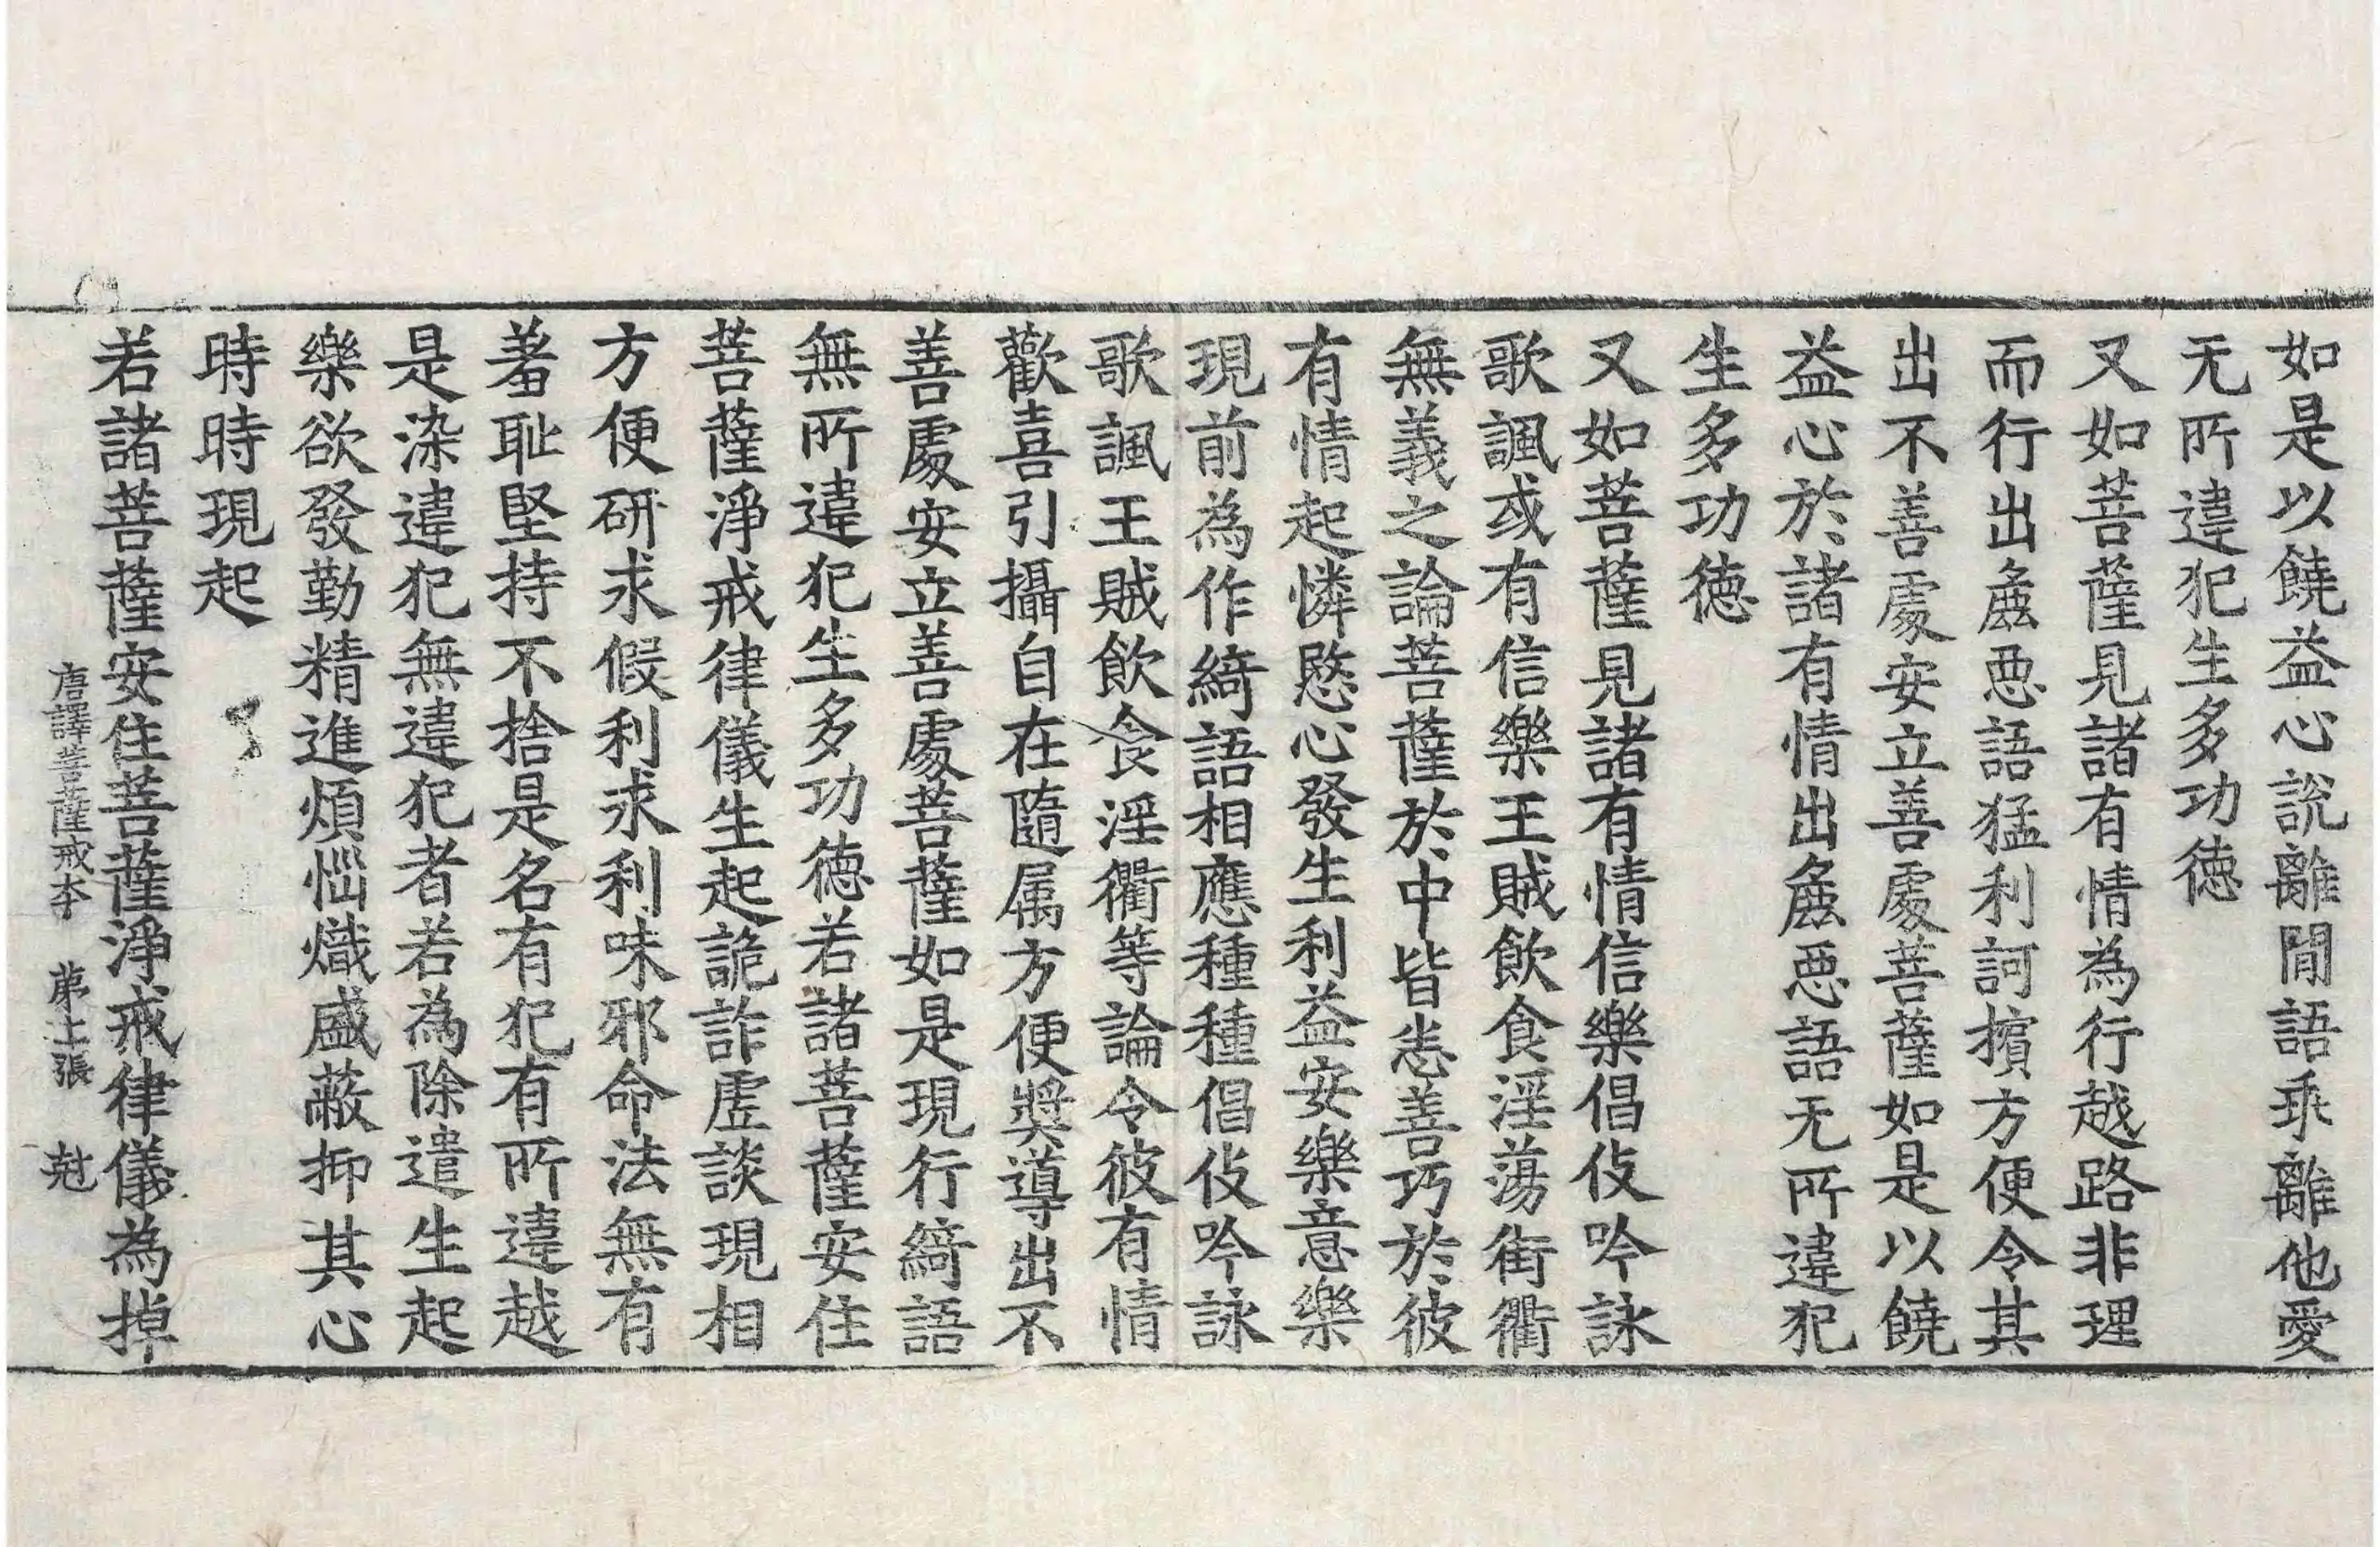 如是以饒益心說離間語乖離他愛
无所違犯生多功徳
又如菩薩見諸有情為行越路非理
而行出麁惡語猛利訶擯方便令其
出不善處安立善處菩薩如是以饒
益心於諸有情出麁惡語无所違犯
生多功徳
又如菩薩見諸有情信樂倡伎吟詠
歌諷或有信樂王賊飲食淫蕩街衢
無義之論菩薩於中皆悉善巧於彼
有情起憐愍心發生利益安樂意樂
現前為作綺語相應種種倡伎吟詠
歌諷王賊飲食淫衢等論令彼有情
歡喜引攝自在隨属方便奬導出不
善處安立善處菩薩如是現行綺語
無所違犯生多功德若諸菩薩安住
菩薩淨戒律儀生起詭詐虛談現相
方便研求假利求利味邪命法無有
羞恥堅持不捨是名有犯有所違越
是染違犯無違犯者若為除遣生起
樂欲發勤精進煩惱熾盛蔽抑其心
時時現起
若諸菩薩安住菩薩淨戒律儀為掉
唐譯菩薩戒本 苐七張 尅